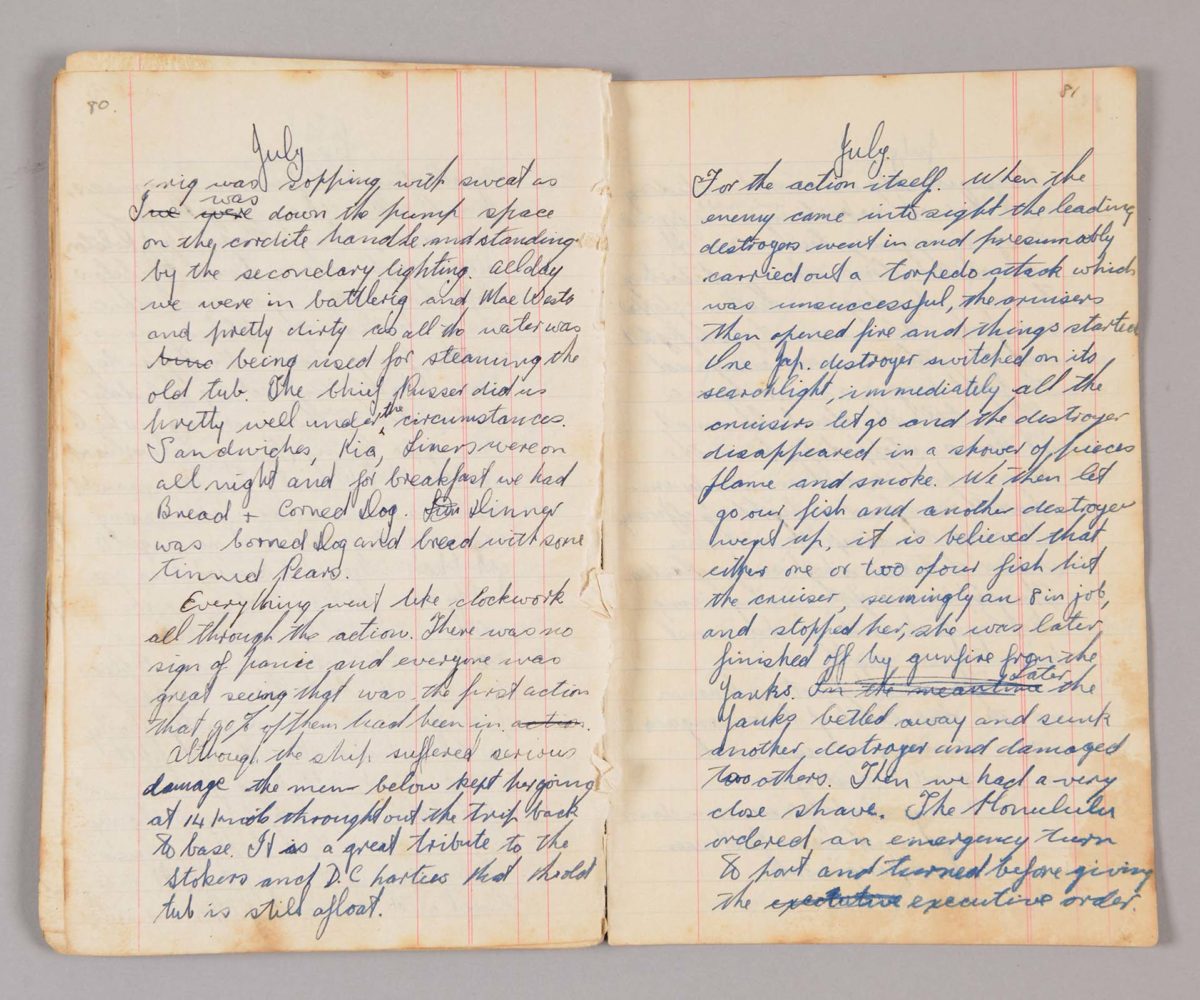 80.
July
rig was sopping with sweat as
was
I've were down the pump space
on the cordite handle and standing
by the secondary lighting. All day
we were in battlerig and Mae Wests
and pretty dirty as all the water was
being used for steaming the
old tub. The Chief Pusser did us
pretty well under the circumstances.
Sandwiches, Kia, Limers were on
all night and for breakfast we had
Bread + Corned Dog. Dinner
was Corned Dog and bread with some
tinned Pears.
Everything went like clockwork
all through the action. There was no
sign of panic and everyone was
great seeing that was the first action
that 90% of them had been in action.
Although the ship suffered serious
damage the men below kept her going
at 14 knots throughtout the trip back
to base. It is a great tribute to the
Stokers and D.C parties that the old
tub is still afloat.
81
July.
For the action itself. When the
enemy came into sight the leading
destroyers went in and presumably
carried out a torpedo attack which
was unsuccessful, the cruisers
then opened fire and things started
One Jap. destroyer switched on its
searchlight, immediately all the
cruisers let go and the destroyer
disappeared in a shower of pieces
flame and smoke. We then let
go our fish and another destroyer
went up, it is believed that
either one or two of our fish hit
the cruiser, seemingly an 8 in job,
and stopped her, she was later
finished off by gunfire from the
Later
Yanks. In the meantime the
Yanks betled away and sunk
another destroyer and damaged
two others. Then we had a very
close shave. The Honululu
ordered an emergency turn
to port and turned before giving
the executive executive order.